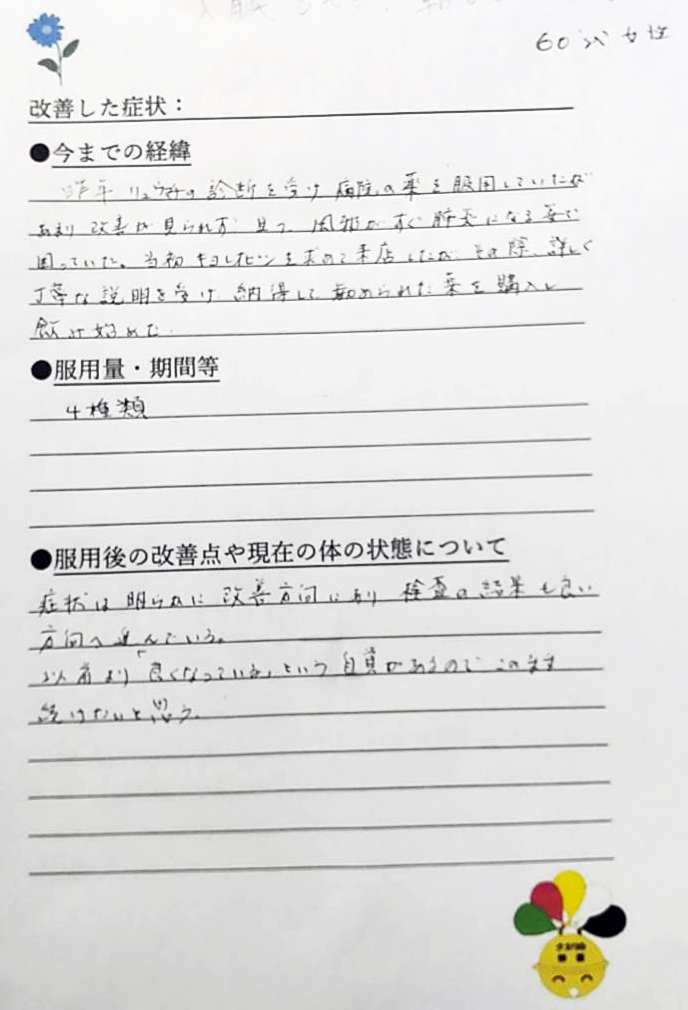 60代女性
改善した症状：
●今までの経緯
昨年リュウマチの診断を受け病院の薬を服用していたが
あまり改善が見られず且つ風邪がすぐ肺炎になる事で
困っていた。当初キヨレオピンを求めて来店したがその際、詳しく
丁寧な説明を受け納得して勧められた薬を購入し
飲み始めた。
●服用量・期間等
4種類
●服用後の改善点や現在の体の状態について
症状は明らかに改善方向にあり検査の結果も良い
方向へ進んでいる。
以前より「良くなっている」という自負があるのでこのまま
続けたいと思う。